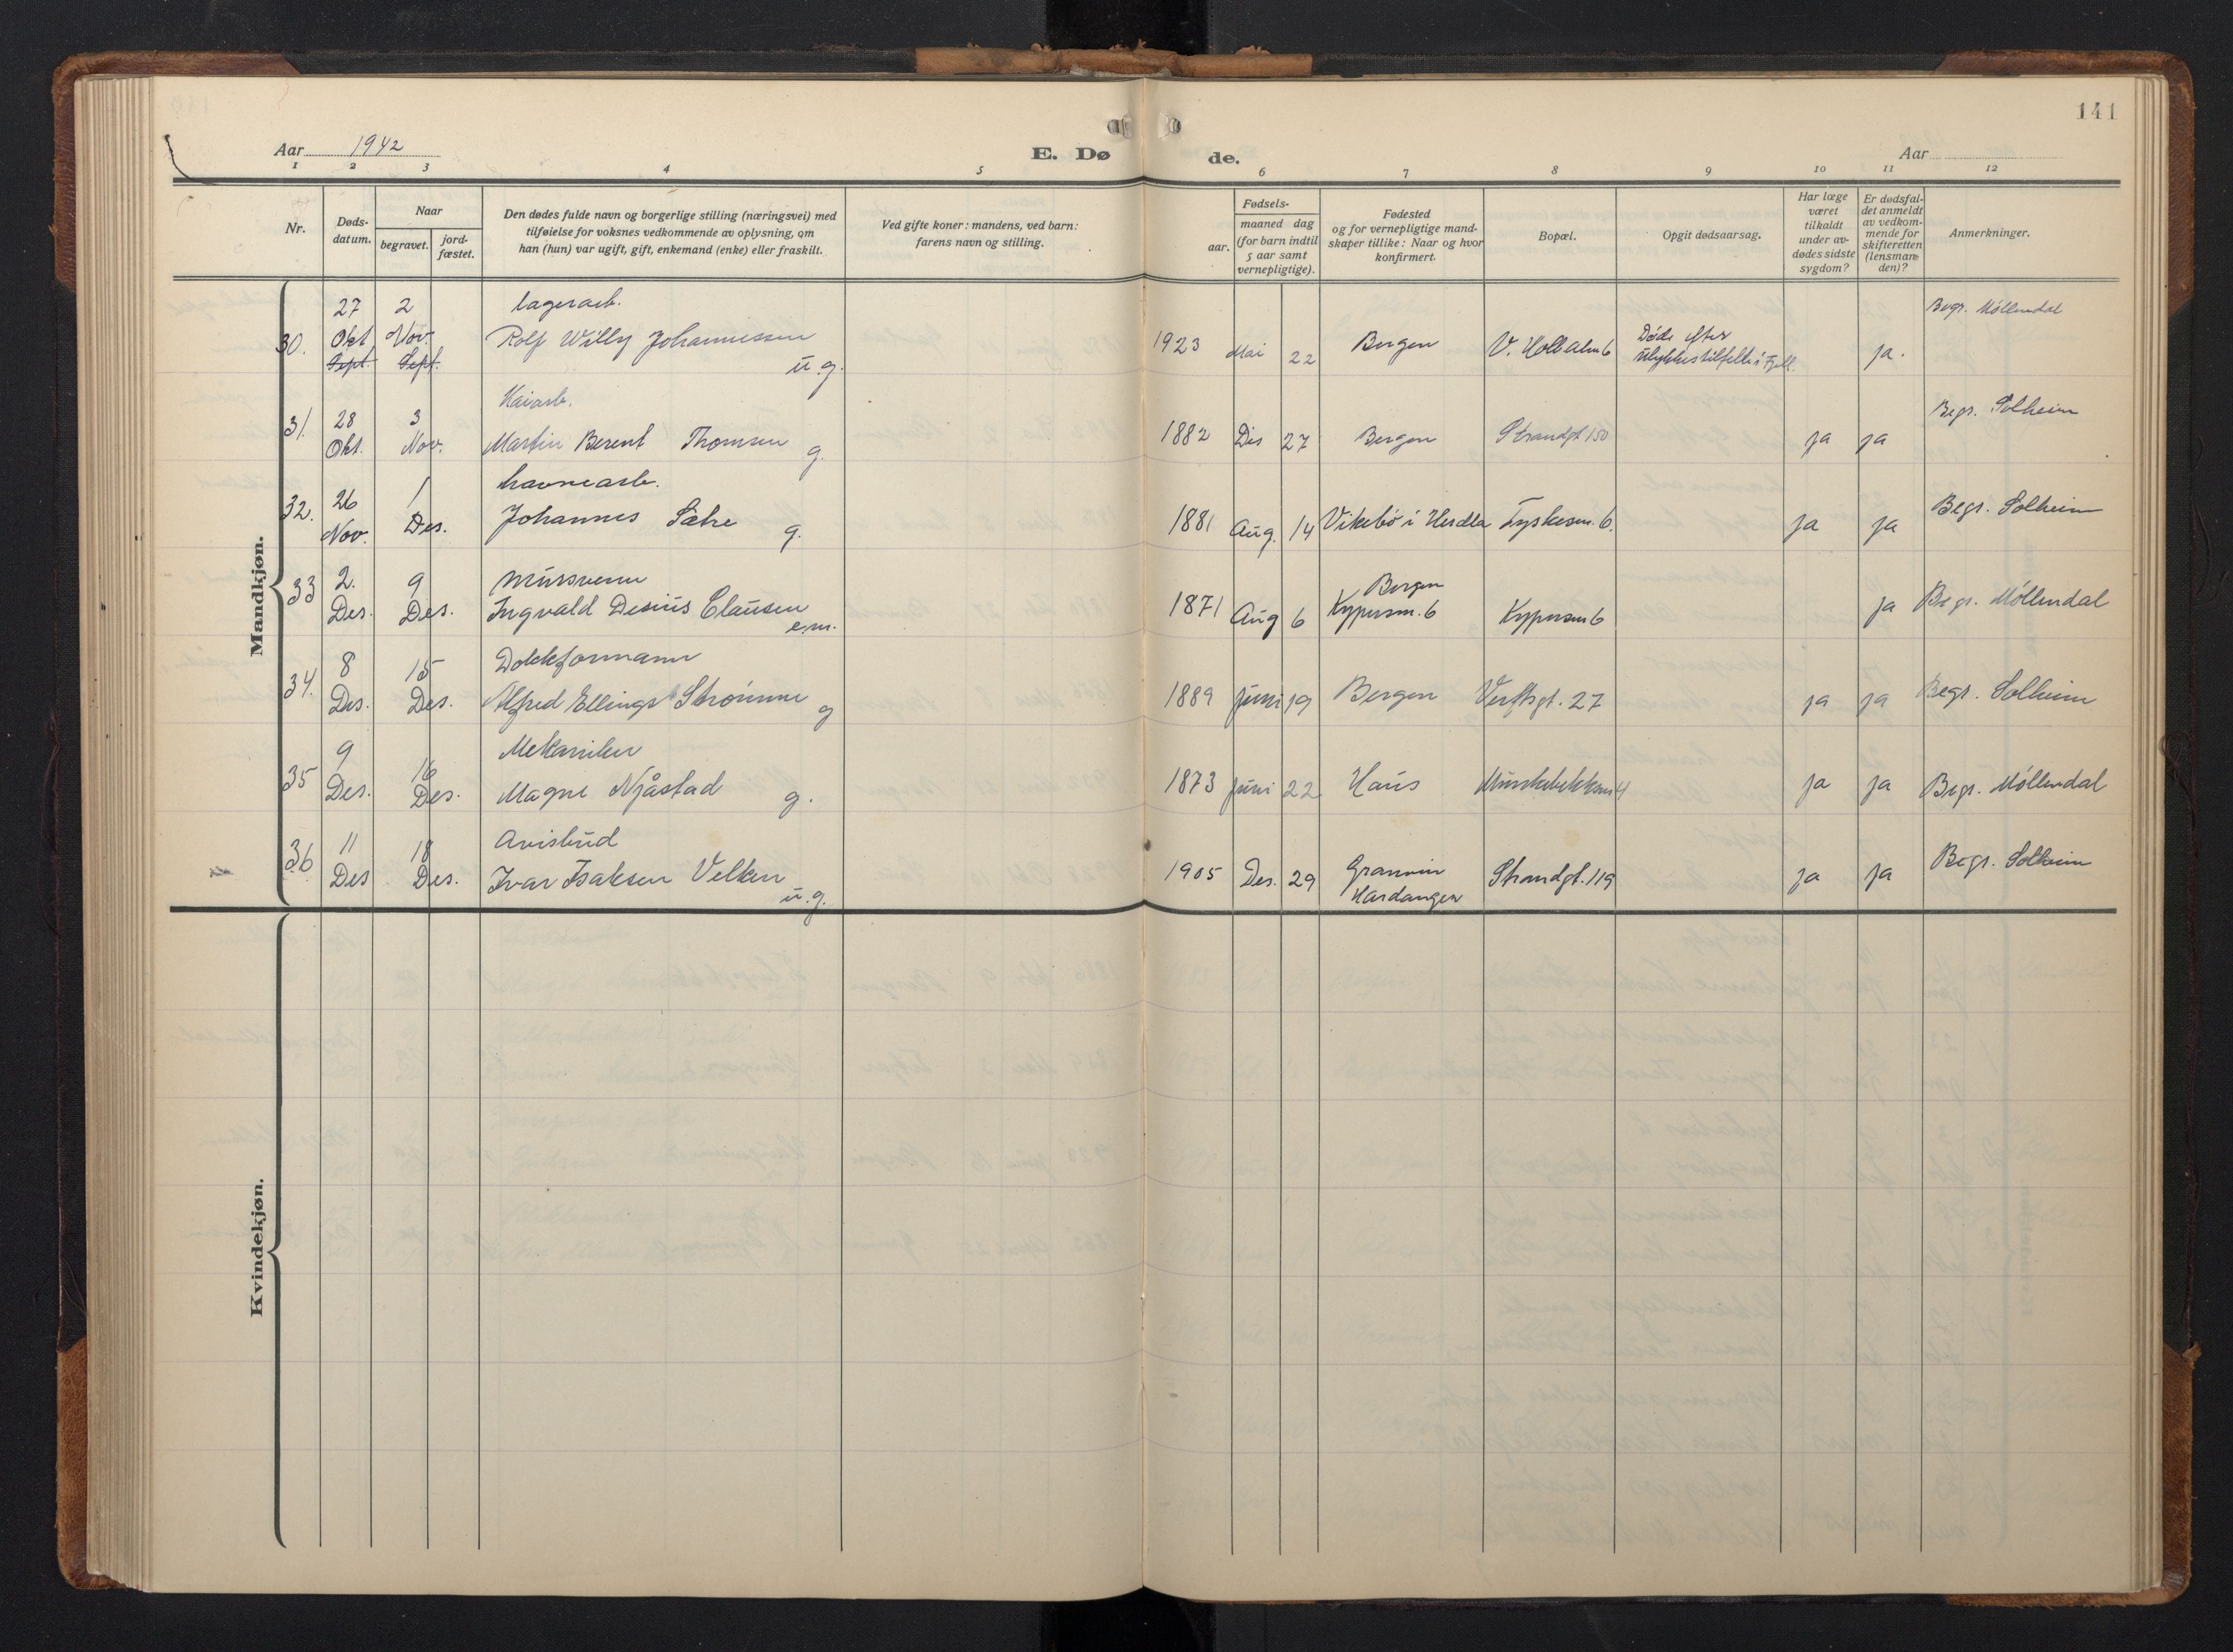 141
Aar 1942
E. Døde.
Aar
1 2 3 4 5 6 7 8 9 10 11 12
Nr.
Døds-
datum.
Naar
begravet.
jord-
fæstet.
Den dødes fulde navn og borgerlige stilling (næringsvei) med
tilføielse for voksnes vedkommende av oplysning, om
han (hun) var ugift, gift, enkemand (enke) eller fraskilt.
Ved gifte koner: mandens, ved barn:
farens navn og stilling.
Fødsels-
aar.
maaned dag
(for barn indtil
5 aar samt
vernepligtige).
Fødested
og for vernepligtige mand-
skaper tillike: Naar og hvor
konfirmert.
Bopæl.
Opgit dødsaarsag.
Har læge
været
tilkaldt
under av-
dødes sidste
sygdom?
Er dødsfal-
det anmeldt
av vedkom-
mende for
skifteretten
(lensman-
den)?
Anmerkninger.
Mandkjøn.
27 2 lagerarb. Begr. Møllendal
30. Okt Nov. Rolf Willy Johannessen 1923 Mai 22 Bergen V. Holbalm 6 Døde efter
Sept. Sept. u.g. ulykkestilfelle i Fjell. ja.
Kaiarb.
31. 28 3 Begr. Solheim
Okt. Nov. Martin Berent Thomsen g. 1882 Des 27 Bergen Strandgt 150 ja ja
havnearb.
32. 26 1 Begr. Solheim
Nov. Des. Johannes Sæhre g. 1881 Aug. 14 Vikebø i Herdla Tyskesm. 6. ja ja
33 2. 9 Murssvenn Bergen
Des. Des. Ingvald Desius Clausen e.m. 1871 Aug 6 Kypersm. 6 Kypersm 6 ja Begr. Møllendal
34. 8 15 Dokkformann
Des. Des. Alfred Ellings Strømme g 1889 Juni 19 Bergen Verftsgt. 27 ja ja Begr. Solheim
35 9 16 Mekaniker
Des. Des. Magne Njåstad g. 1873 Juni 22 Haus Munkebekksm 4 ja ja Begr. Møllendal
36 11 18 Avisbud
Des Des. Ivar Isaksen Velken u.g. 1905 Des. 29 Granvin Strandgt. 119 ja ja Begr. Solheim
Hardanger
Kvindekjøn.